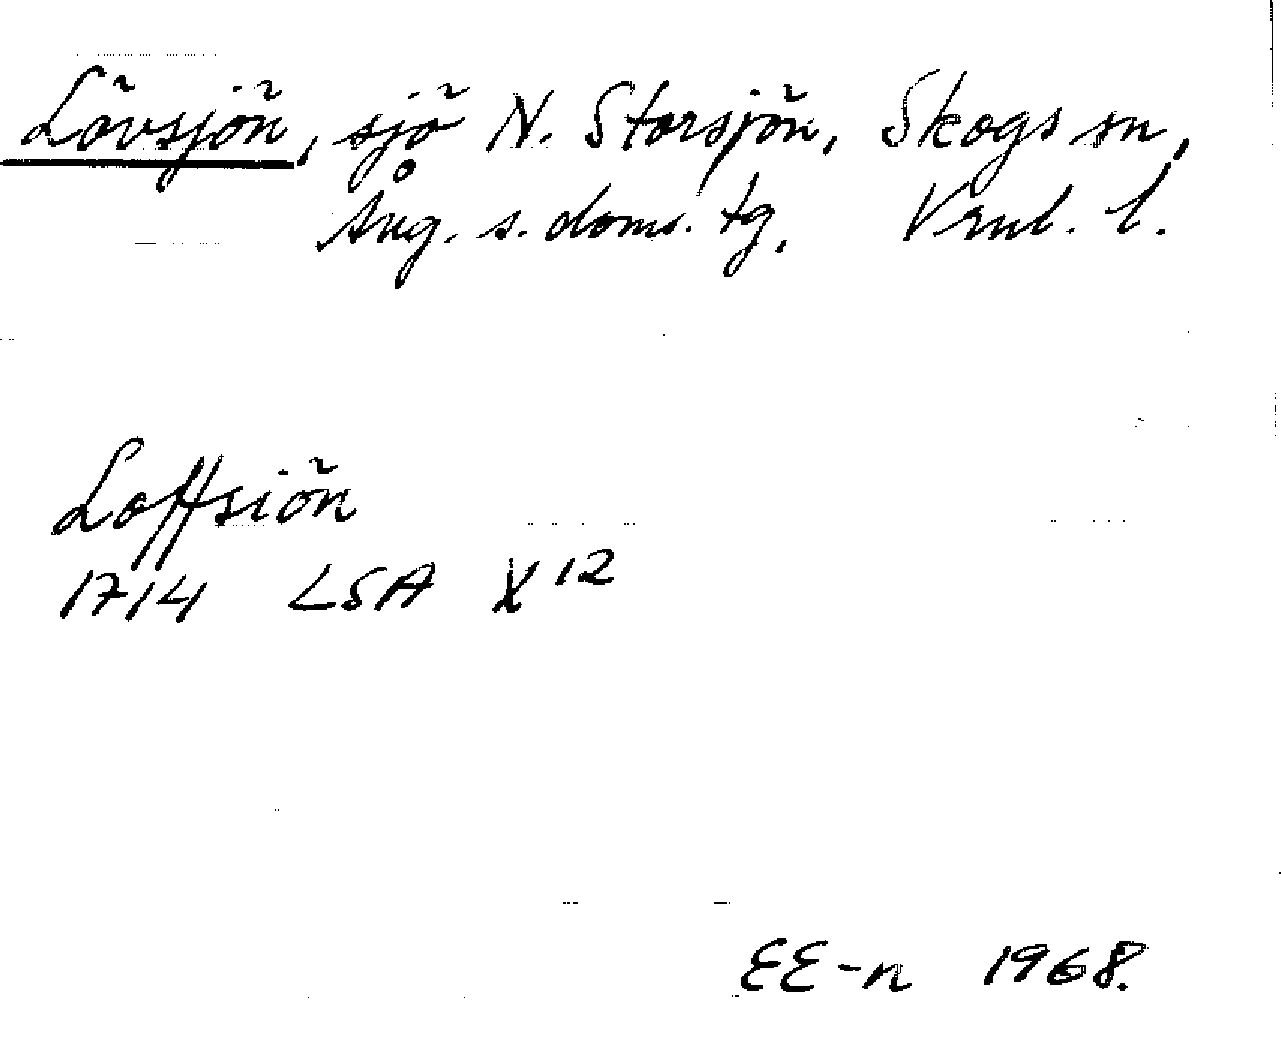 Lövsjön, sjö N. Storsjön, Skogs sn,
Ång. s. doms. tg. Vrnl. l.
Loffsiön
1714 LSA X 12
EE-n 1968.